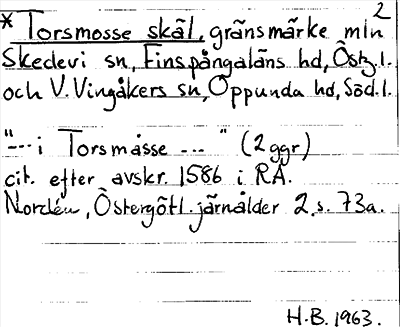 2
* Torsmosse skäl, gränsmärke mln
Skedevi sn, Finspångaläns hd, Östg.l.
och V. Vingåkers sn, Oppunda hd, Söd.l.
"--- i Torsmåsse --- " (2 ggr)
cit. efter avskr. 1586 i RA.
Nordén, Östergötl. järnålder 2. s. 73a.
H.B. 1963.